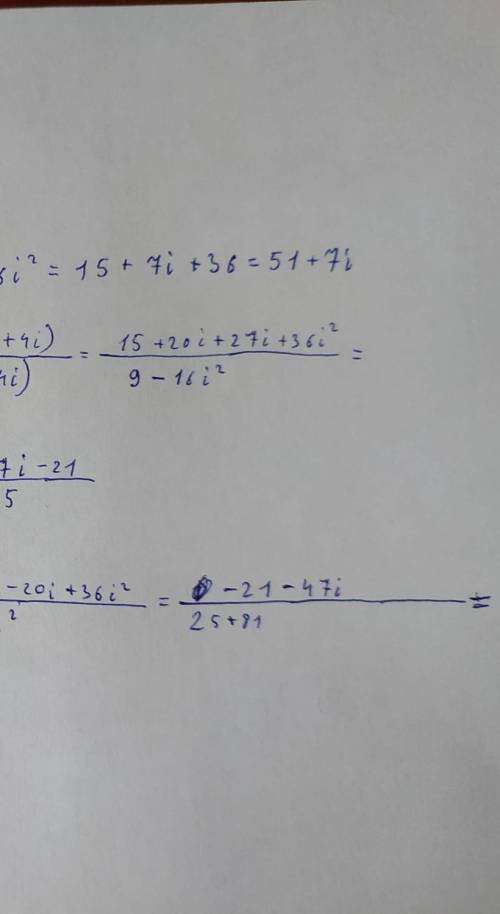 i² = 15 + 7i + 36 = 51 + 7i
+ 4i) / 4i) = 15 + 20i + 27i + 36i² / 9 - 16i² =
7i - 21 / 5
- 20i + 36i² / ² = - 21 - 47i / 25 + 81 =